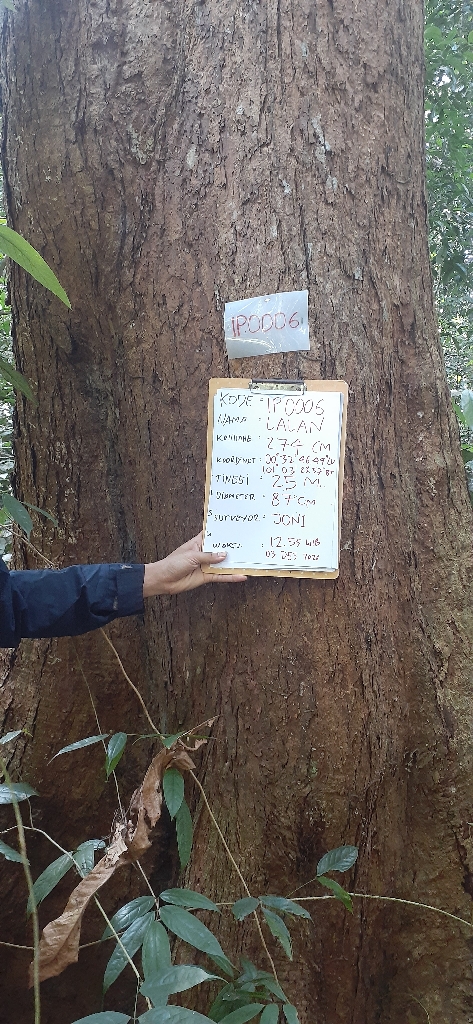 IP0006
KODE : IP0006
NAMA : LALAN
KELILING : 274 CM
KOORDINAT :
TINGGI : 25 M
DIAMETER : 87 CM
SURVEYOR : JONI
WAKTU : 12.35 WIB
03 DES